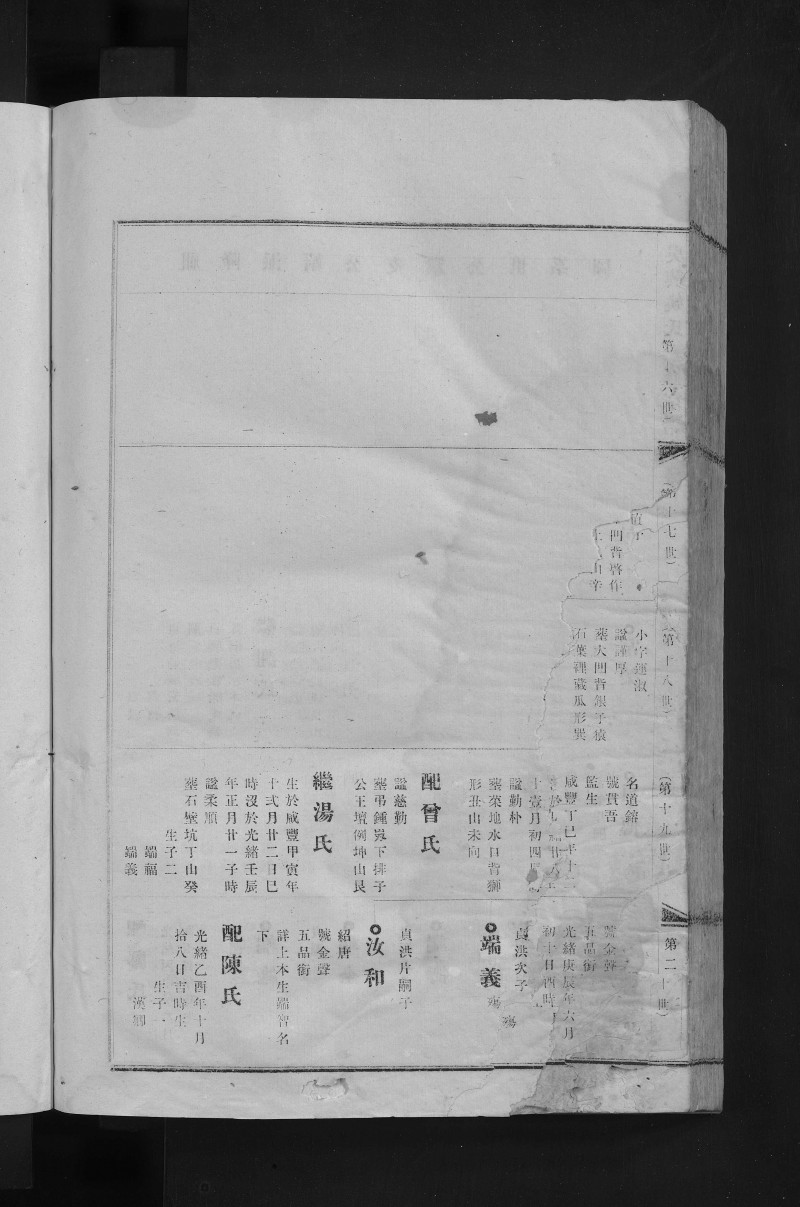 第十六世
第十七世
門背啓作
第十八世
小字鍾淑
諡謹厚
葬大凹背銀子嶺
石葉裡藏瓜形巽
第十九世
名道鎔
號貫吾
監生
咸豐丁巳年十二
十壹月初四
諡勤朴
葬菜地水口背獅
形丑山未向
配曾氏
諡慈勤
葬弔鍾嵏下排子
公王壇側坤山艮
繼湯氏
生於咸豐甲寅年
十弍月廿二日巳
時沒於光緒壬辰
年正月廿一子時
諡柔順
葬石壁坑丁山癸
生子二
端福
端義
第二十世
號金聲
五品銜
光緒庚辰年六月
初十日酉時
貞洪次子
端義
殤
殤
貞洪片嗣子
汝和
紹唐
號金聲
五品銜
詳上本生端智名
下
配陳氏
光緒乙酉年十月
拾八日吉時生
生子一
漢卿